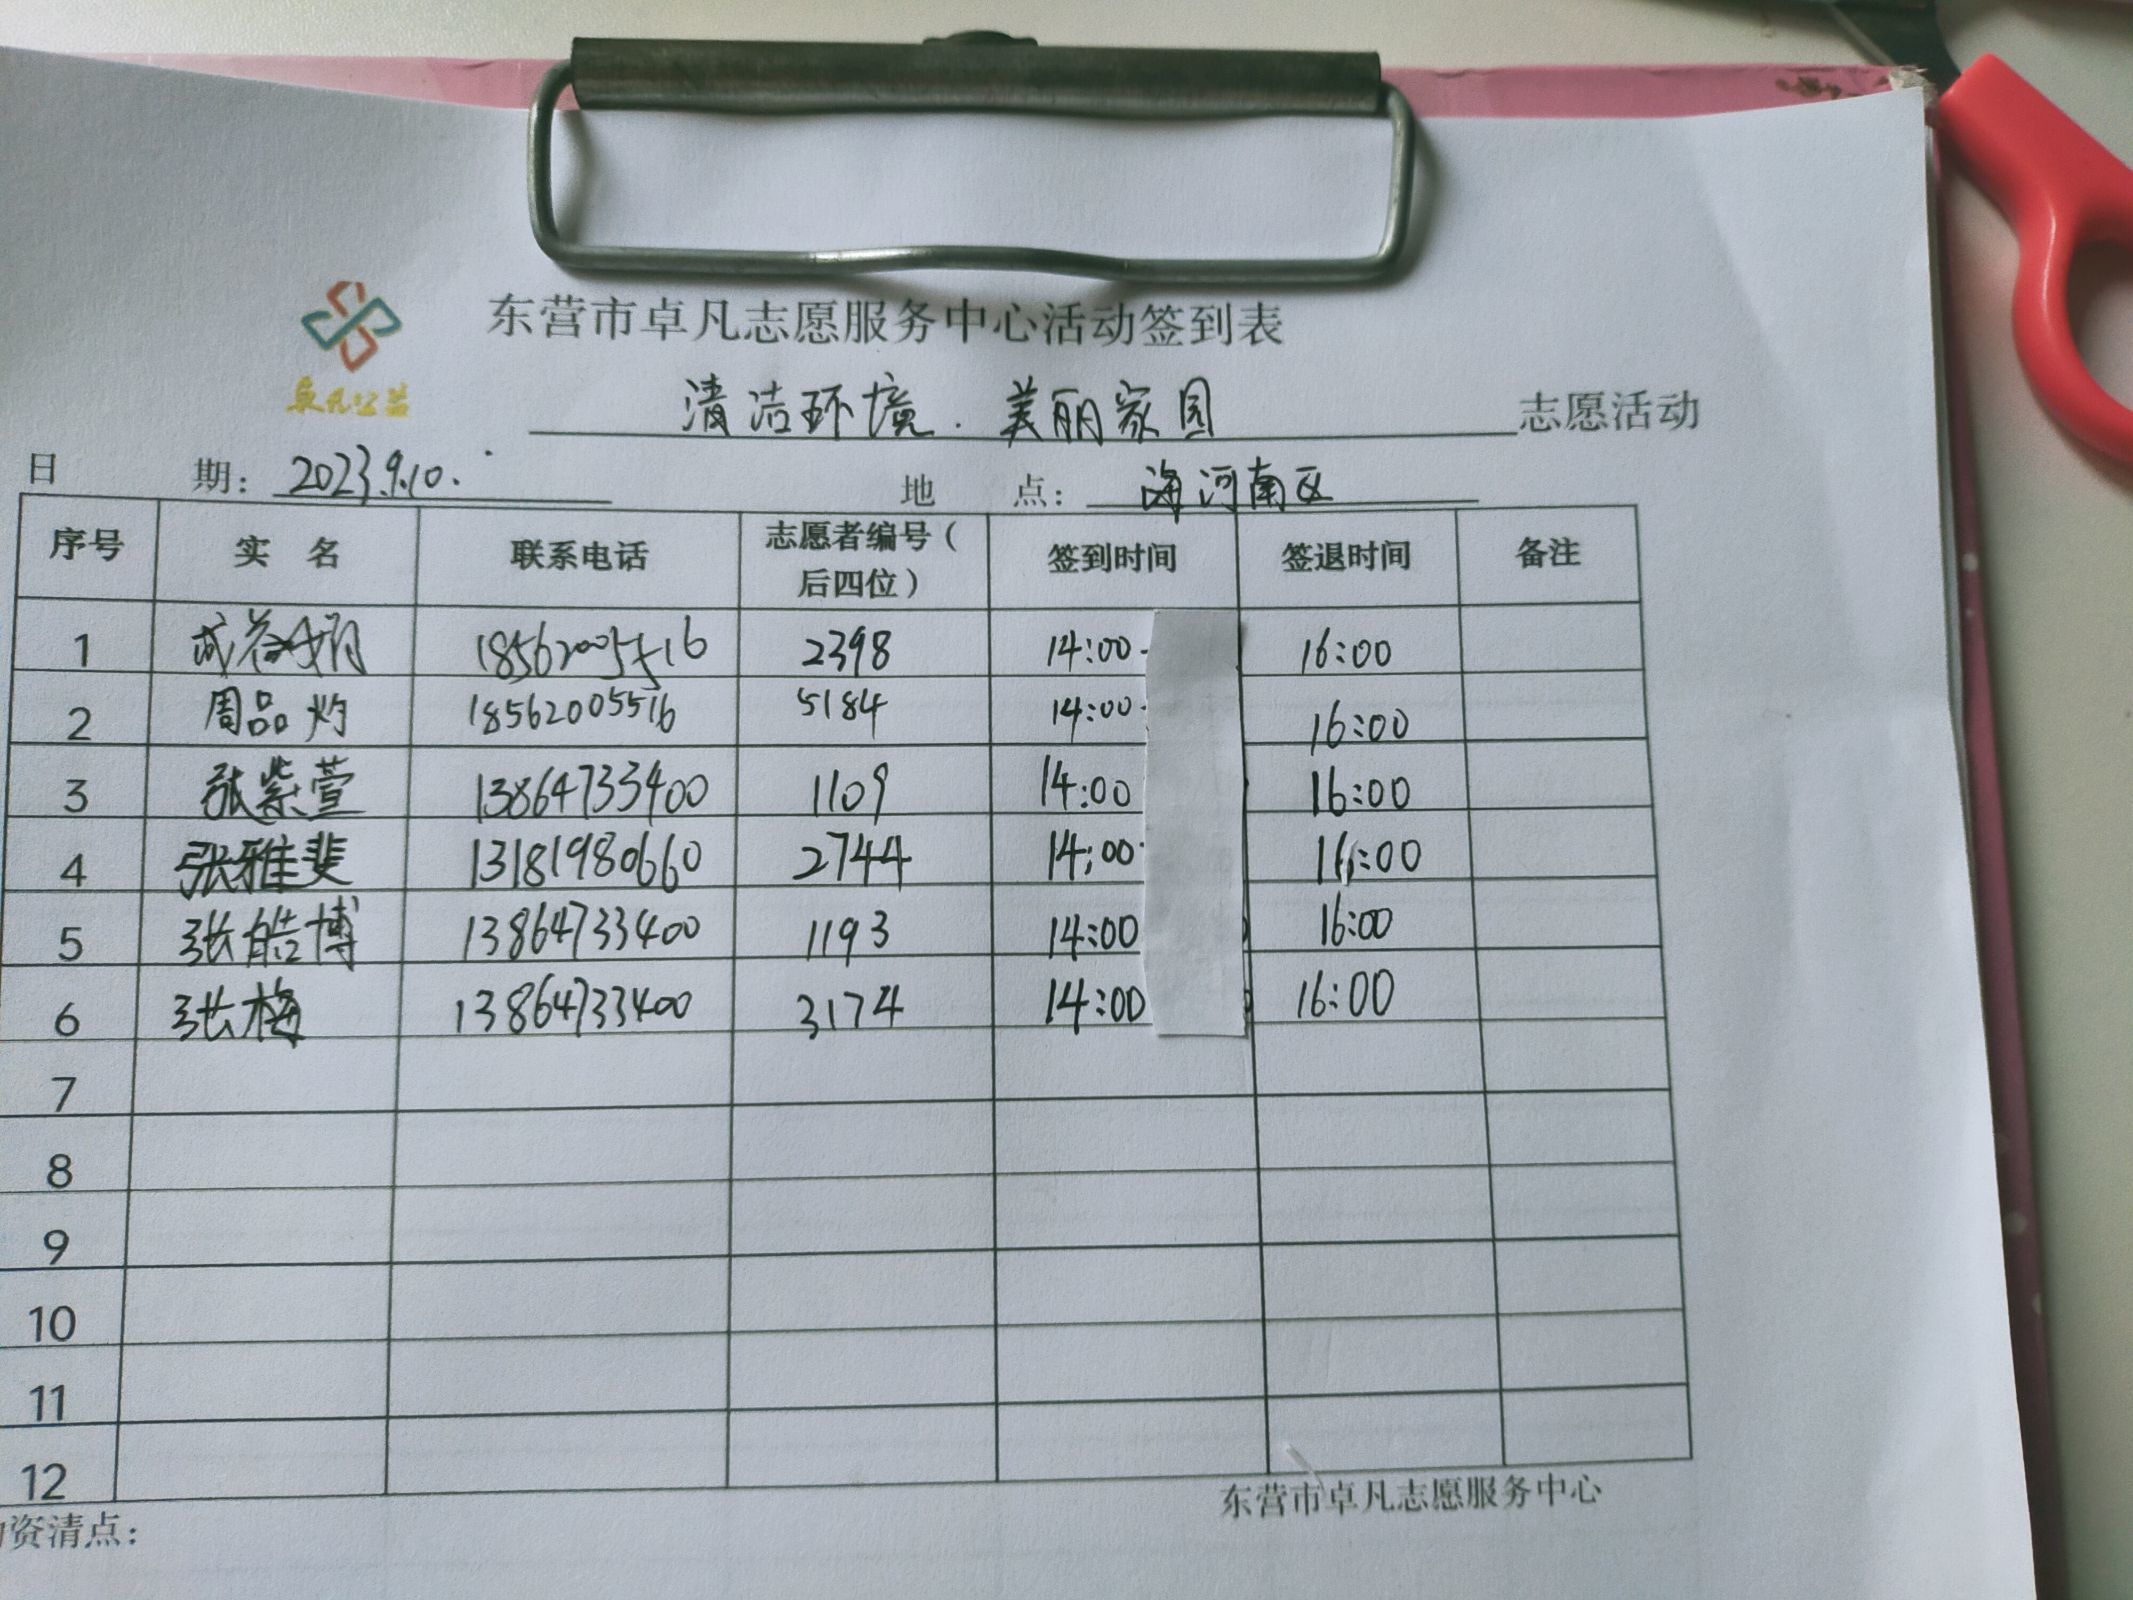 东营市卓凡志愿服务中心活动签到表
卓凡公益
清洁环境.美丽家园 志愿活动
日期：2023.9.10. 地点：海河南区
序号 实名 联系电话 志愿者编号（后四位） 签到时间 签退时间 备注
1 18562005516 2398 14:00 16:00
2 周品灼 18562005516 5184 14:00 16:00
3 张紫萱 13864733400 1109 14:00 16:00
4 张雅斐 13181980660 2744 14:00 16:00
5 张皓博 13864733400 1193 14:00 16:00
6 张梅 13864733400 3174 14:00 16:00
7
8
9
10
11
12
东营市卓凡志愿服务中心
资清点：